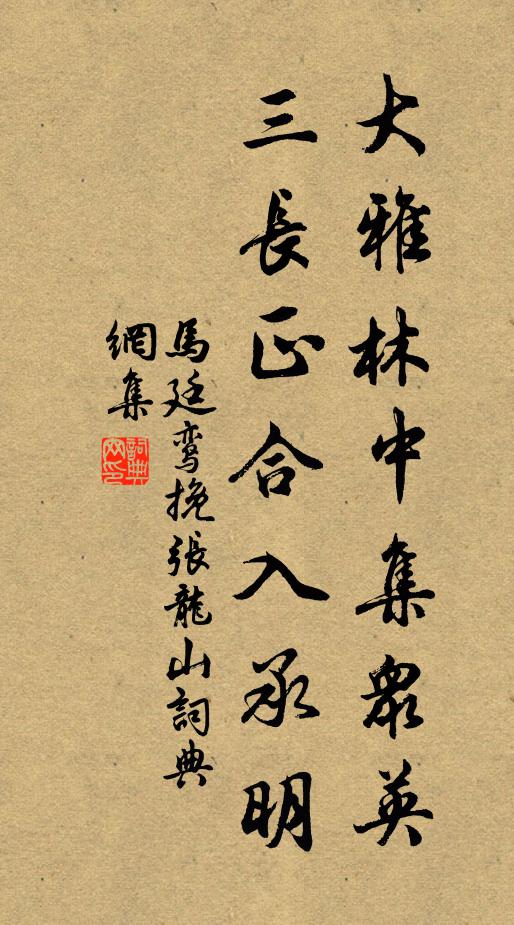 大雅林中集眾英
三長正合入承明
馬廷鸾挽張龍山詞典
網集
詞典網印